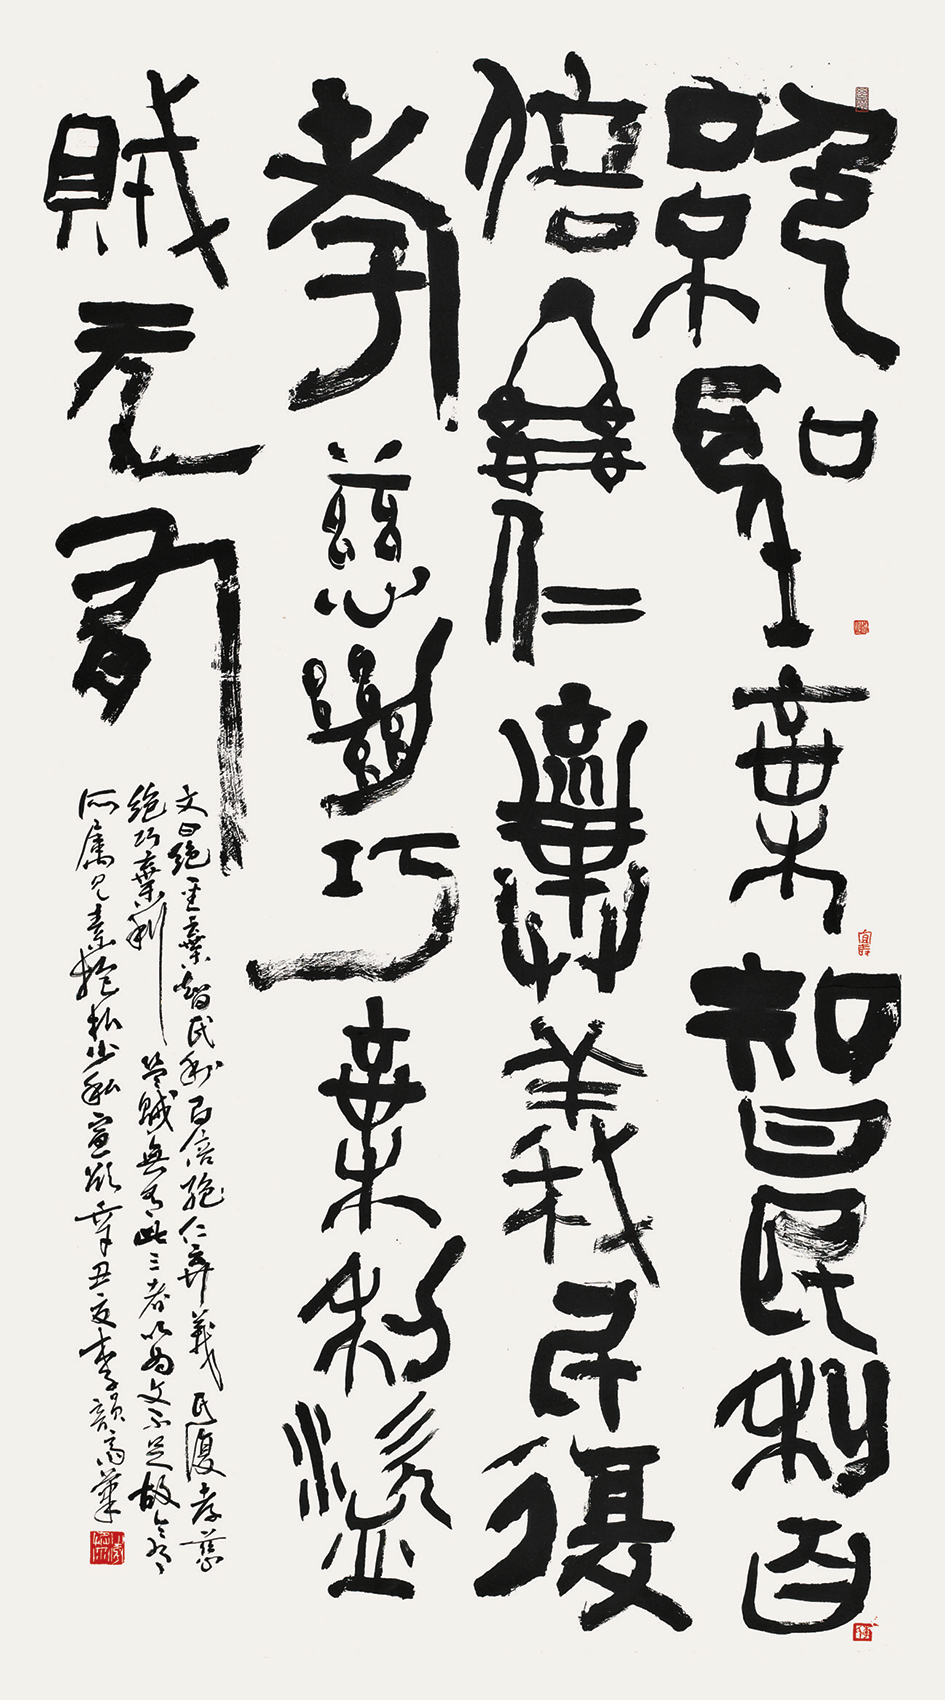 絕聖棄智民利百
倍絕仁棄義民復
孝慈絕巧棄利盜
賊无有
文曰絕聖棄智民利百倍絕仁棄義民復孝慈
絕巧棄利盜賊無有此三者以為文不足故令有
所屬見素抱朴少私寡欲辛丑夏李韻